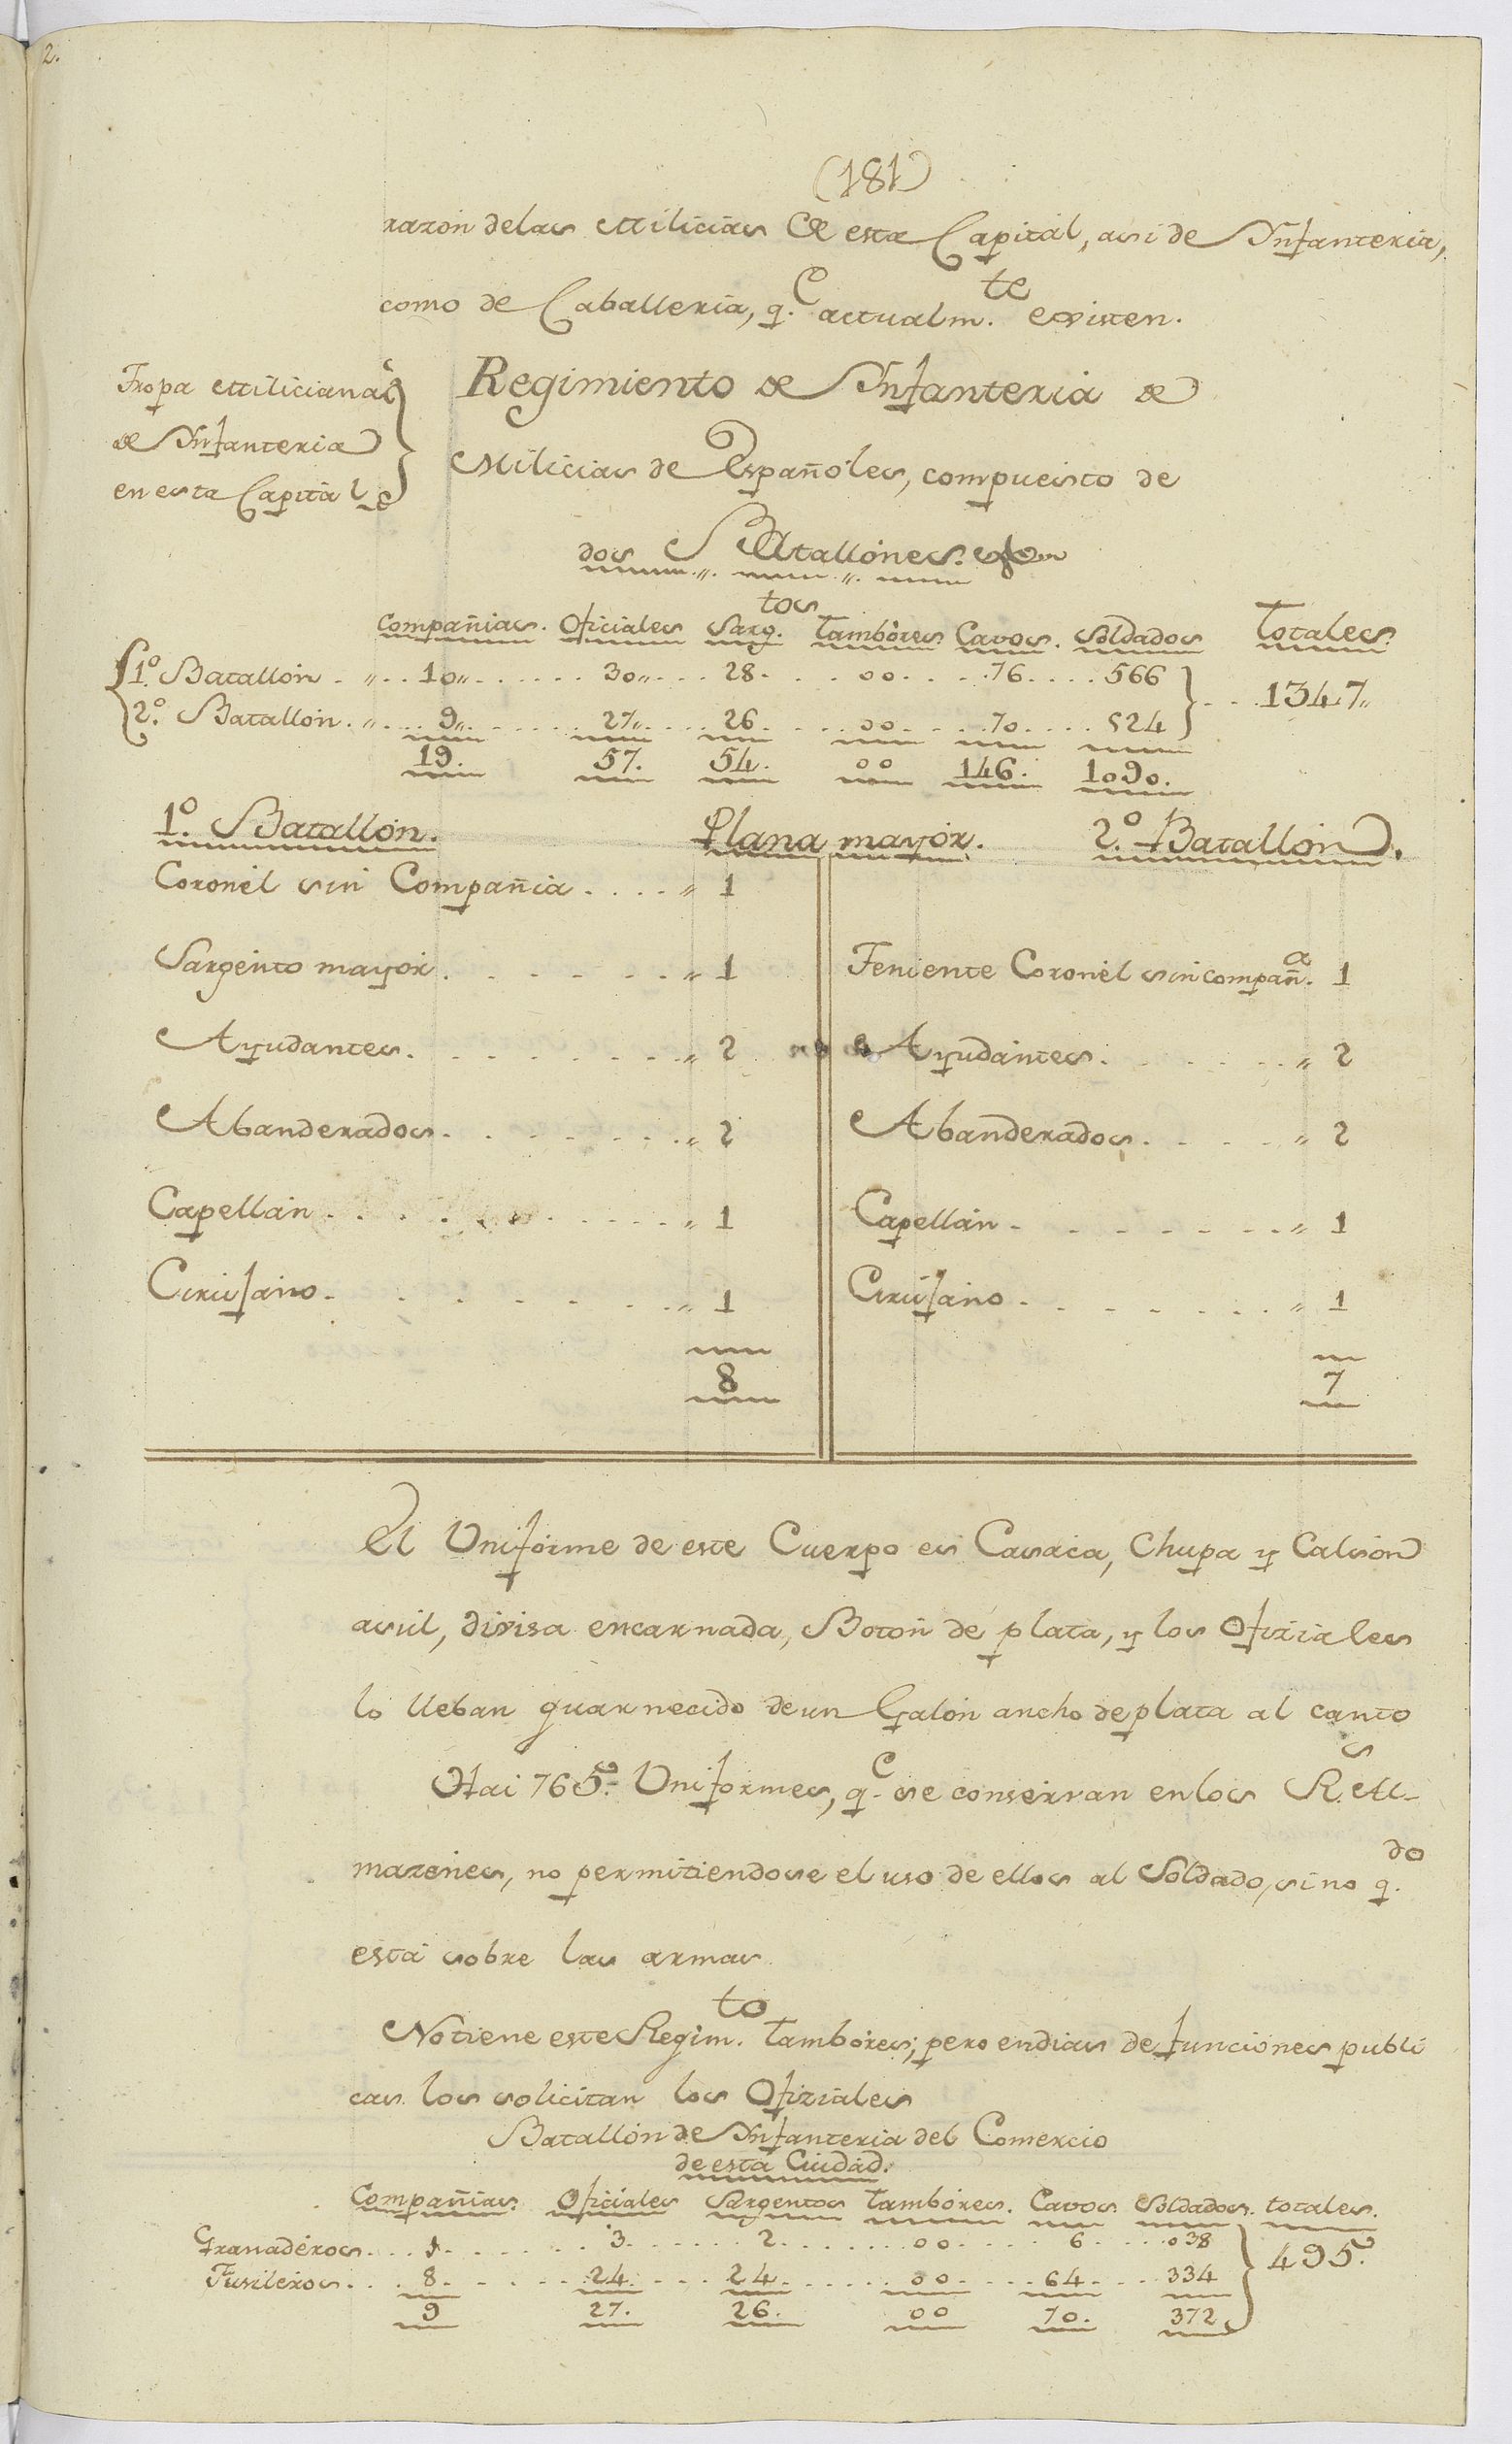 2.
(181)
razon delas Milicias de esta Capital, asi de Ynfanteria,
como de Caballeria, q.e actualm.te existen.
Tropa Miliciana
de Ynfanteria
en esta Capital
Regimiento de Ynfanteria de
Milicias de Españoles, compuesto de
dos Batallones.
Compañias. Oficiales Sarg.tos Tambores Cavos. Soldados Totales.
1.º Batallon . ,, . . 10,, . . . . . . 30,, . . . 28 . . . 00 . . . 76 . . . . 566
2.º Batallon . ,, . . . 9,, . . . . . . 27,, . . . 26 . . . 00 . . . 70 . . . . 524 . . . 1347,,
19. 57. 54. 00 146. 1090.
1.º Batallon. Plana mayor. 2.º Batallon.
Coronel sin Compañia . . . . ,, 1
Sargento mayor . . . . . . ,, 1 Teniente Coronel sin compañ.a 1
Ayudantes . . . . . . . ,, 2 Ayudantes . . . . . ,, 2
Abanderados . . . . . . . ,, 2 Abanderados . . . . ,, 2
Capellan . . . . . . . . ,, 1 Capellan . . . . . . ,, 1
Cirujano . . . . . . . . ,, 1 Cirujano . . . . . . ,, 1
8 7
El Uniforme de este Cuerpo es Casaca, Chupa y Calsion
asul, divisa encarnada, Boton de plata, y los Ofiziales
lo lleban guarnecido de un Galon ancho de plata al canto
Hai 765. Uniformes, q.e se conservan en los R.s Al-
mazenes, no permitiendose el uso de ellos al Soldado, sino q.do
está sobre las armas
No tiene este Regim.to Tambores; pero en dias de funciones publi
cas los solicitan los Ofiziales
Batallon de Ynfanteria del Comercio
de esta Ciudad.
Compañias. Oficiales Sargentos Tambores. Cavos Soldados. totales.
Granadéros . . . 1 . . . . . . 3 . . . . . 2 . . . . . . 00 . . . . 6 . . . 038
Fusileros . . . 8 . . . . . 24 . . . 24 . . . . . 00 . . . 64 . . . 334 495.
9 27. 26. 00 70. 372